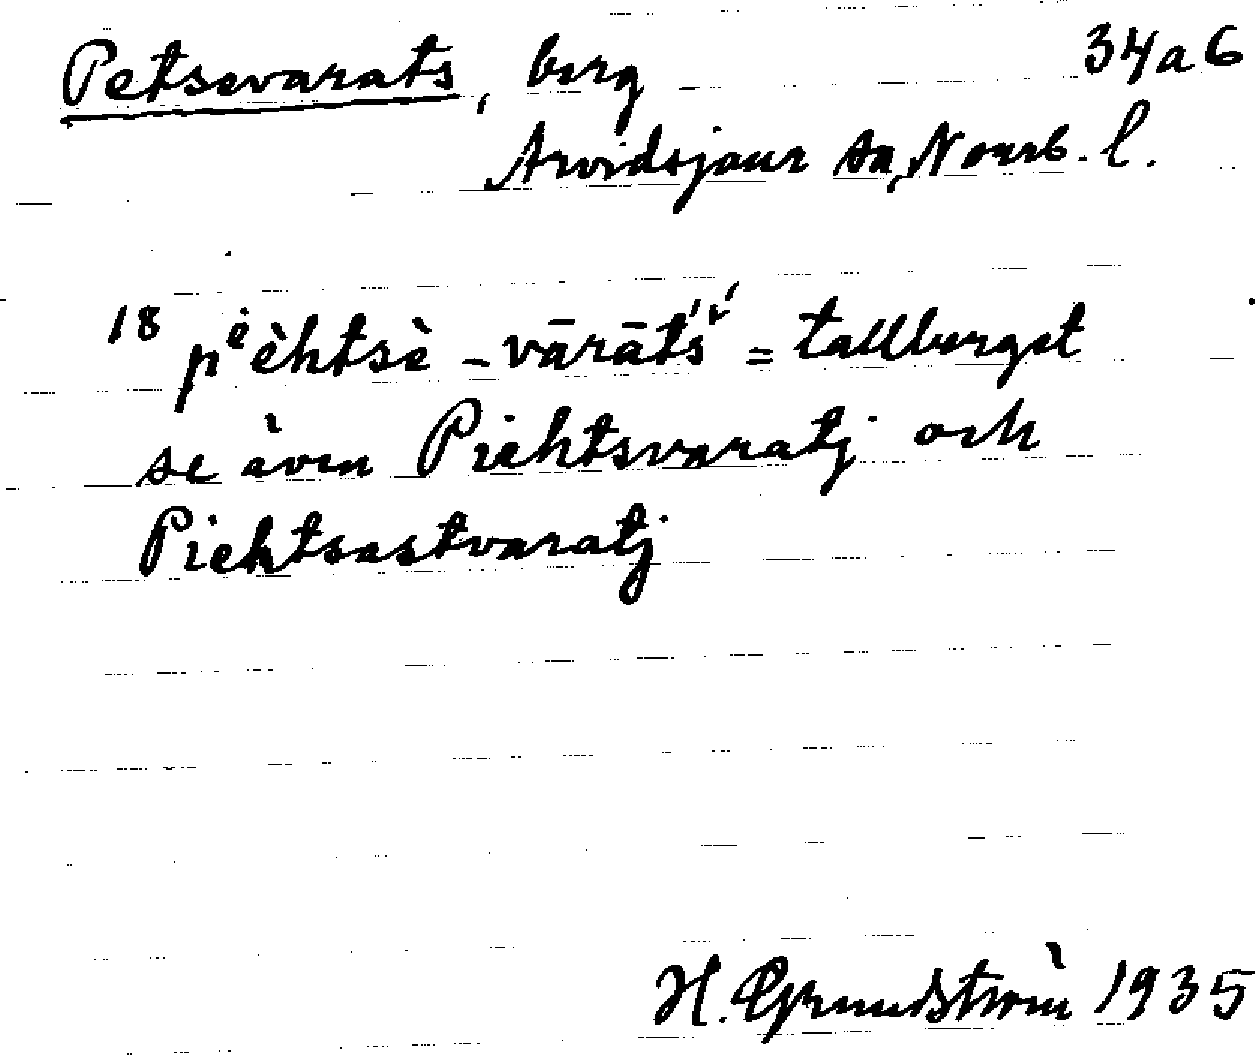 Petsevarats, berg 34a6
Arvidsjaur sn, Norrb. l.
18 pėèhtsè - vārāt́ś = tallberget
se även Piehtsvaratj och
Piehtsastvaratj
H. Grundström 1935